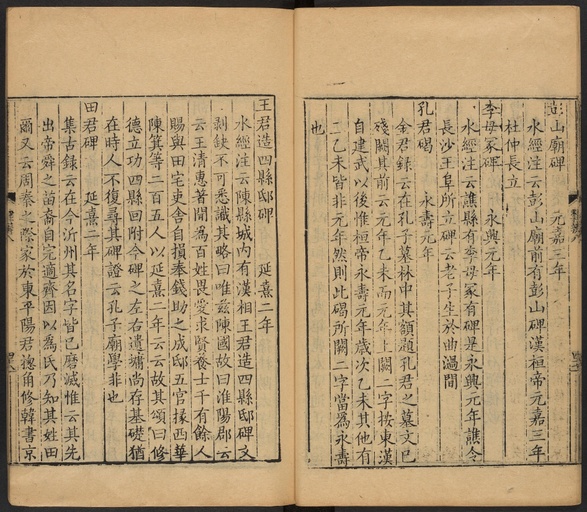 彭山廟碑 元嘉三年
水經注云彭山廟前有彭山碑漢桓帝元嘉三年
杜仲長立
李母冢碑 永興元年
水經注云譙縣有李母冢有碑是永興元年譙令
長沙王阜所立碑云老子生於曲過間
孔君碣 永壽元年
金君錄云在孔子墓林中其額題孔君之墓文已
殘闕其前云元年乙未而元年上闕二字按東漢
自建武以後惟桓帝永壽元年歳次乙未其他有
二乙未皆非元年然則此碣所闕二字當為永壽
也
王君造四縣邸碑 延熹二年
水經注云陳縣城內有漢相王君造四縣邸碑文
剥缺不可悉識其略曰惟兹陳國故曰淮陽郡云
云王清惠著聞為百姓畏愛求賢養士千有餘人
賜與田宅吏舍自損奉錢助之成邸五官掾西華
陳騏等二百五人以延熹二年云云故其頌曰修
德立功四縣回附今碑之左右遺墉尚存基礎猶
在時人不復尋其碑證云孔子廟學非也
田君碑 延熹二年
集古錄云在今沂州其名字皆已磨滅惟云其先
出帝舜之苗裔自完適齊因以為氏乃知其姓田
爾又云周秦之際家於東平陽君總角修韓書京